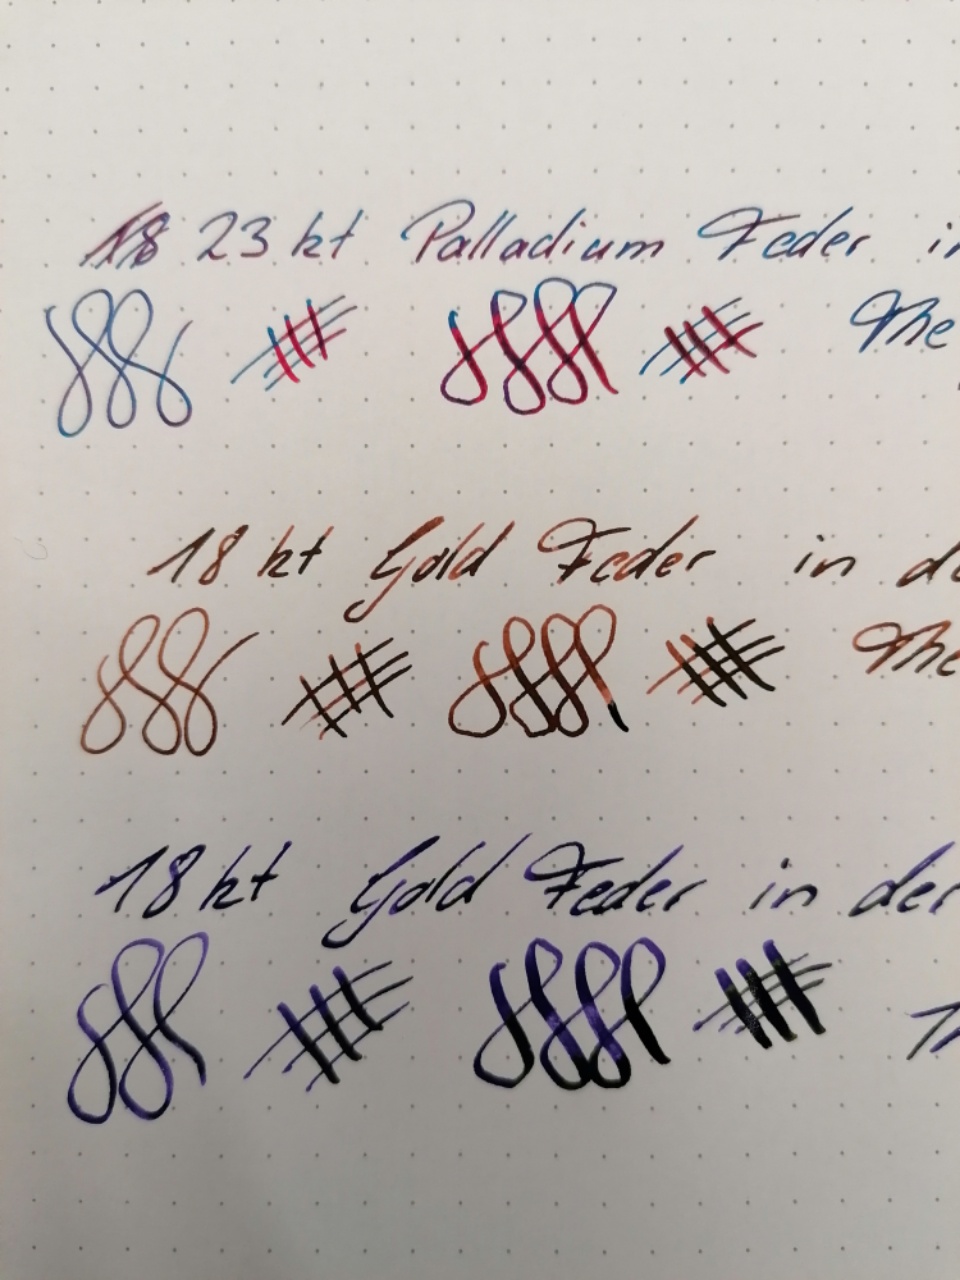 18 23 kt Palladium Feder in
The
18 kt Gold Feder in de
The
18 kt Gold Feder in der